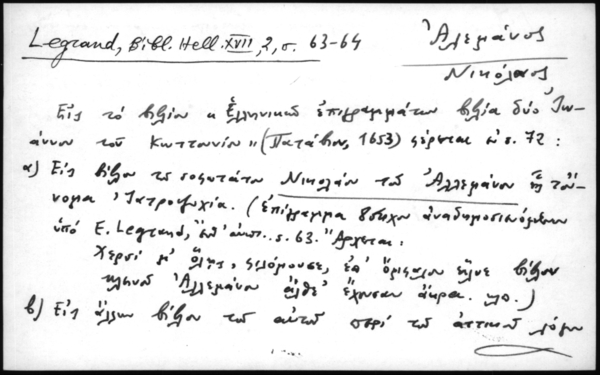 Legrand, Bibl. Hell. XVII, 2, σ. 63-64
Ἀλεμάνος
Νικόλαος
Εἰς τὸ βιβλίον « Ἑλληνικῶν ἐπιγραμμάτων βιβλία δύο Ἰω-
άννου τοῦ Κωττουνίου » (Πατάβιον, 1653) φέρεται ἐν σ. 72 :
α) Εἰς βίβλον τοῦ σοφωτάτου Νικολάου τοῦ Ἀλλεμάνου ᾗ τοὔ-
νομα Ἰατροψυχία. (ἐπίγραμμα 8στιχον ἀναδημοσιευόμενον
ὑπὸ E. Legrand, ἔνθ' ἀνωτ. σ. 63. Ἄρχεται :
Χερσὶ μ' ὅλῃς, φιλόμουσε, ἐπ' βίβλον
κλεινοῦ Ἀλλεμάνου ἄκρα. κλ.)
β) Εἰς ἄλλην βίβλον τοῦ αὐτοῦ περὶ τοῦ ἀττικοῦ λόγου